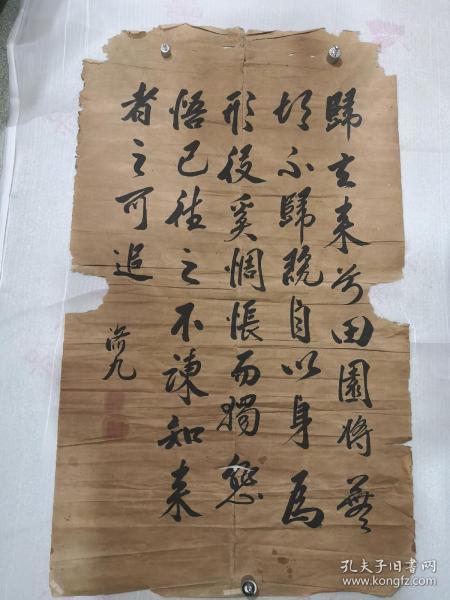 歸去来兮田園将蕪
胡不歸既自以身為
形役奚惆悵而獨悲
悟已往之不諫知来
者之可追
渝九
孔夫子旧书网
www.kongfz.com